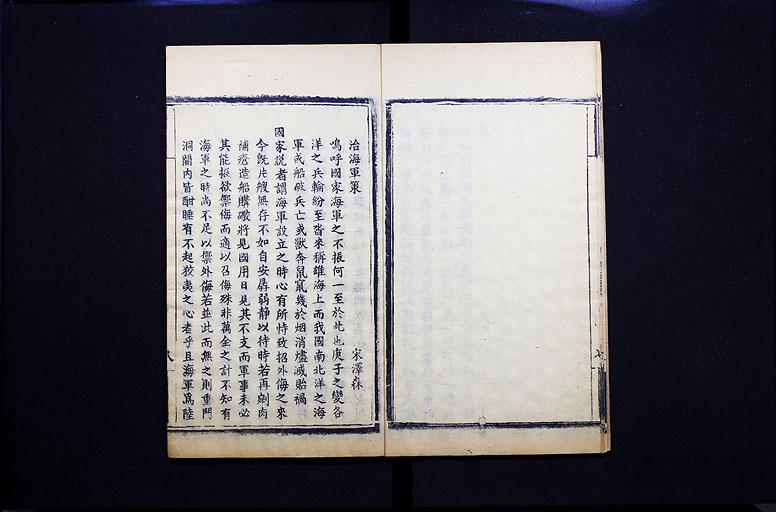 治海軍策
宋澤森
嗚呼國家海軍之不振何一至於此也庚子之變各
洋之兵輪紛至沓來稱雄海上而我國南北洋之海
軍或船破兵亡或獸奔鼠竄幾於烟消燼滅貽禍
國家説者謂海軍設立之時心有所恃致招外侮之來
今既片艘無存不如自安孱弱靜以待時若再剜肉
補瘡造船購礮將見國用日見其不支而軍事未必
其能振欲禦侮而適以召侮殊非萬全之計不知有
海軍之時尚不足以禦外侮若並此而無之則重門
洞開內皆酣睡有不起狡夷之心者乎且海軍爲陸
八
七